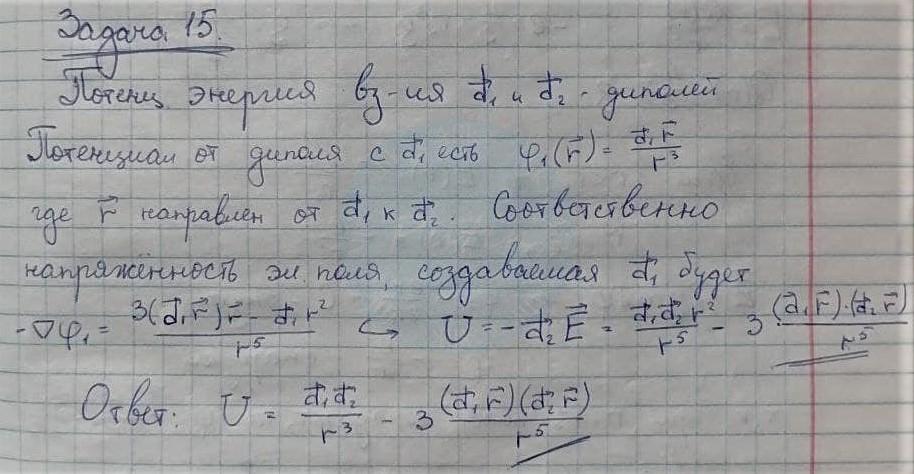 Задача 15.
Потенц энергия вз-ия d⃗₁ и d⃗₂ - диполей
Потенциал от диполя с d⃗₁ есть φ₁(r⃗) = d⃗₁r⃗ / r³
где r⃗ направлен от d⃗₁ к d⃗₂. Соответственно
напряжённость эл. поля, создаваемая d⃗₁ будет
-∇φ₁ = (3(d⃗₁r⃗)r⃗ - d⃗₁r²) / r⁵ ↪ U = -d⃗₂E⃗ = d⃗₁d⃗₂r² / r⁵ - 3 (d⃗₁r⃗)·(d⃗₂r⃗) / r⁵
Ответ: U = d⃗₁d⃗₂ / r³ - 3 (d⃗₁r⃗)(d⃗₂r⃗) / r⁵